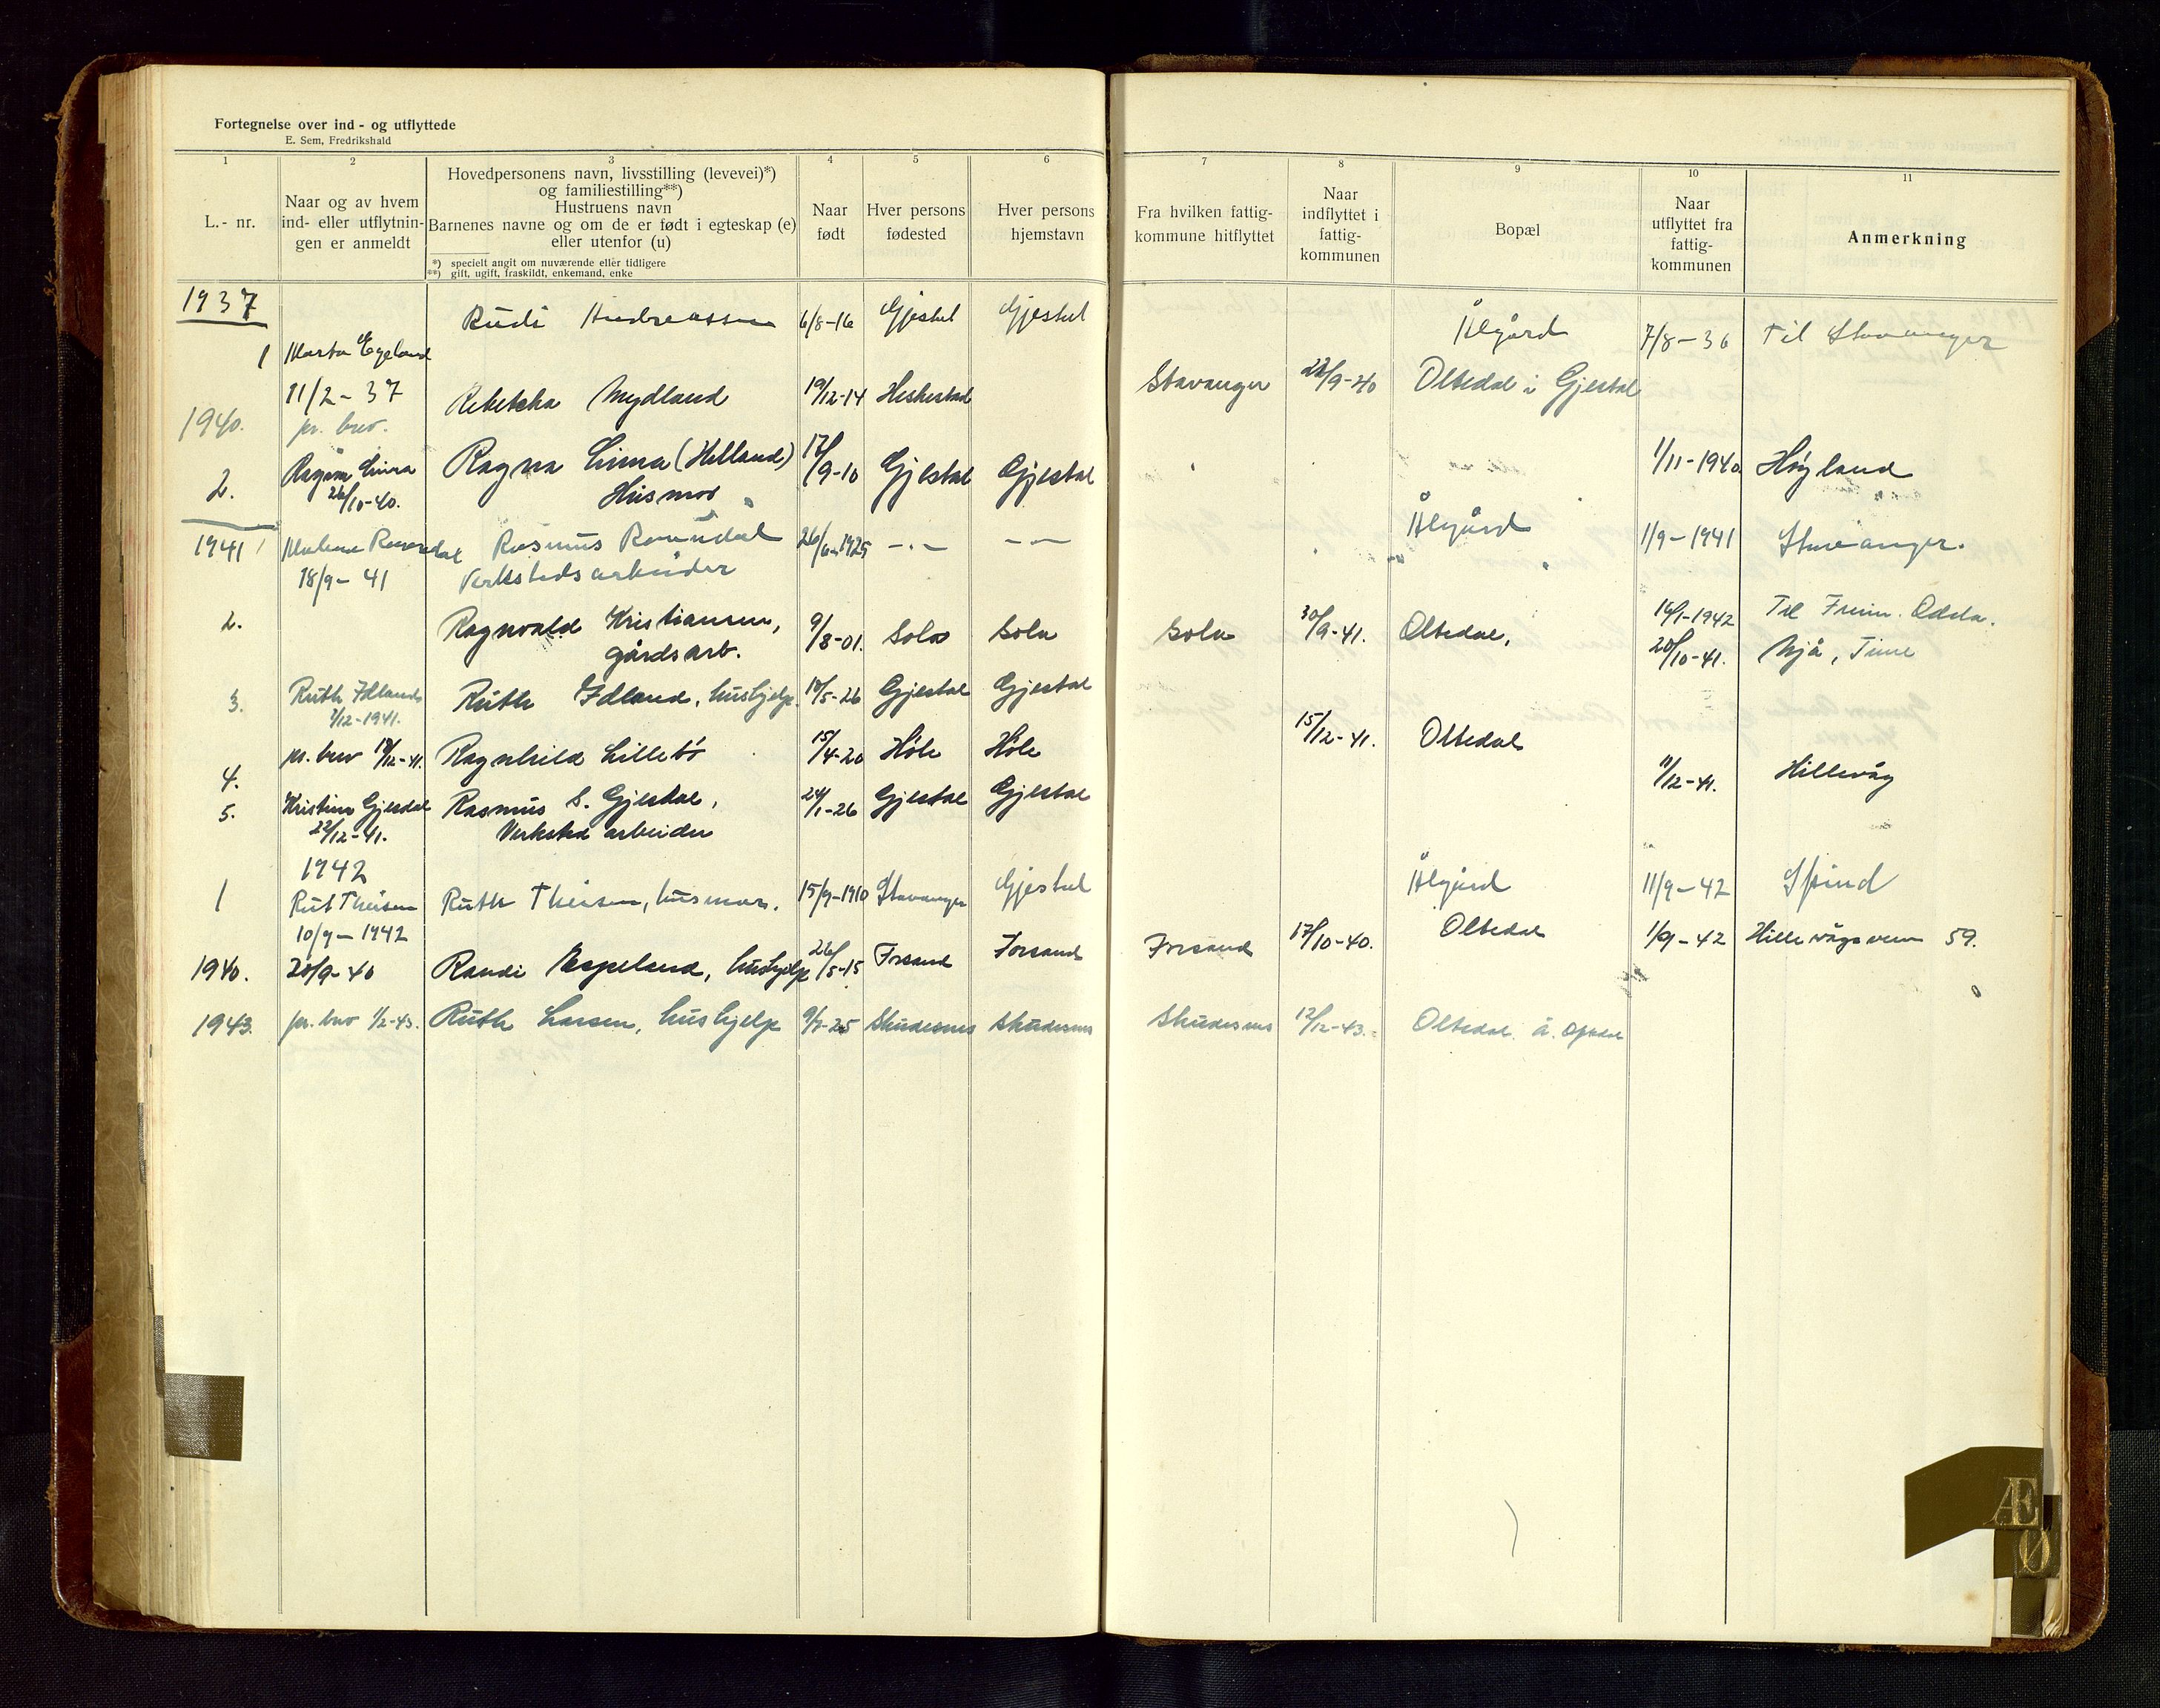 Fortegnelse over ind - og utflyttede
E. Sem, Fredrikshald
1 2 3 4 5 6 7 8 9 10 11
L.- nr.
Naar og av hvem
ind- eller utflytnin-
gen er anmeldt
Hovedpersonens navn, livsstilling (levevei)*)
og familiestilling**)
Hustruens navn
Barnenes navne og om de er født i egteskap (e)
eller utenfor (u)
*) specielt angit om nuværende eller tidligere
**) gift, ugift, fraskildt, enkemand, enke
Naar
født
Hver persons
fødested
Hver persons
hjemstavn
Fra hvilken fattig-
kommune hitflyttet
Naar
indflyttet i
fattig-
kommunen
Bopæl
Naar
utflyttet fra
fattig-
kommunen
Anmerkning
1937
Rudi Andreassen 6/8-16 Gjestal Gjestal Ålgård 7/8-36 Til Stavanger
1 Marta Egeland
11/2-37
Rebekka Mydland 19/12-14 Heskestad Stavanger 22/9-40 Oltedal i Gjestal
1940. pr. brev.
2. Ragna Lima Ragna Lima (Helland) 17/9-10 Gjestal Gjestal 1/11-1940 Høyland
26/10-40. Husmor
1941 1 Malene Ravndal Rasmus Ravndal 26/6-1925 -.- - - Ålgård 1/9-1941 Stavanger.
18/9-41 Verkstedsarbeider
2. Ragnvald Kristiansen, 9/8-01. Sola Sola Sola 30/9-41. Oltedal, 16/1-1942 Til
gårdsarb.
3. Ruth Idland Ruth Idland, hushjelp. 10/5-26 Gjestal Gjestal 20/10-41. Njå, Time
1/12-1941.
4. pr. brev 18/12-41. Ragnhild Lillebø 15/4-20 Høle Høle 15/12-41. Oltedal
5. Kristine Gjesdal Rasmus S. Gjestal, 24/1-26 Gjestal Gjestal 11/12-41. Hillevåg
22/12-41. Verksted arbeider
1942
1 Rut Theisen Ruth Theisen, husmor. 15/9-1910 Stavanger Gjestal Ålgård 11/9-42 Spind
10/9-1942
1940. 20/9-40 Randi Espeland, hushjelp 26/5-15 Forsand Forsand Forsand 17/10-40. Oltedal 1/9-42 Hillevågsveien 59.
1943. pr. brev 1/2-43. Ruth Larsen, hushjelp 9/7-25 Skudesnes Skudesnes Skudesnes 12/12-43. Oltedal å. Opstad
Æ
Ø